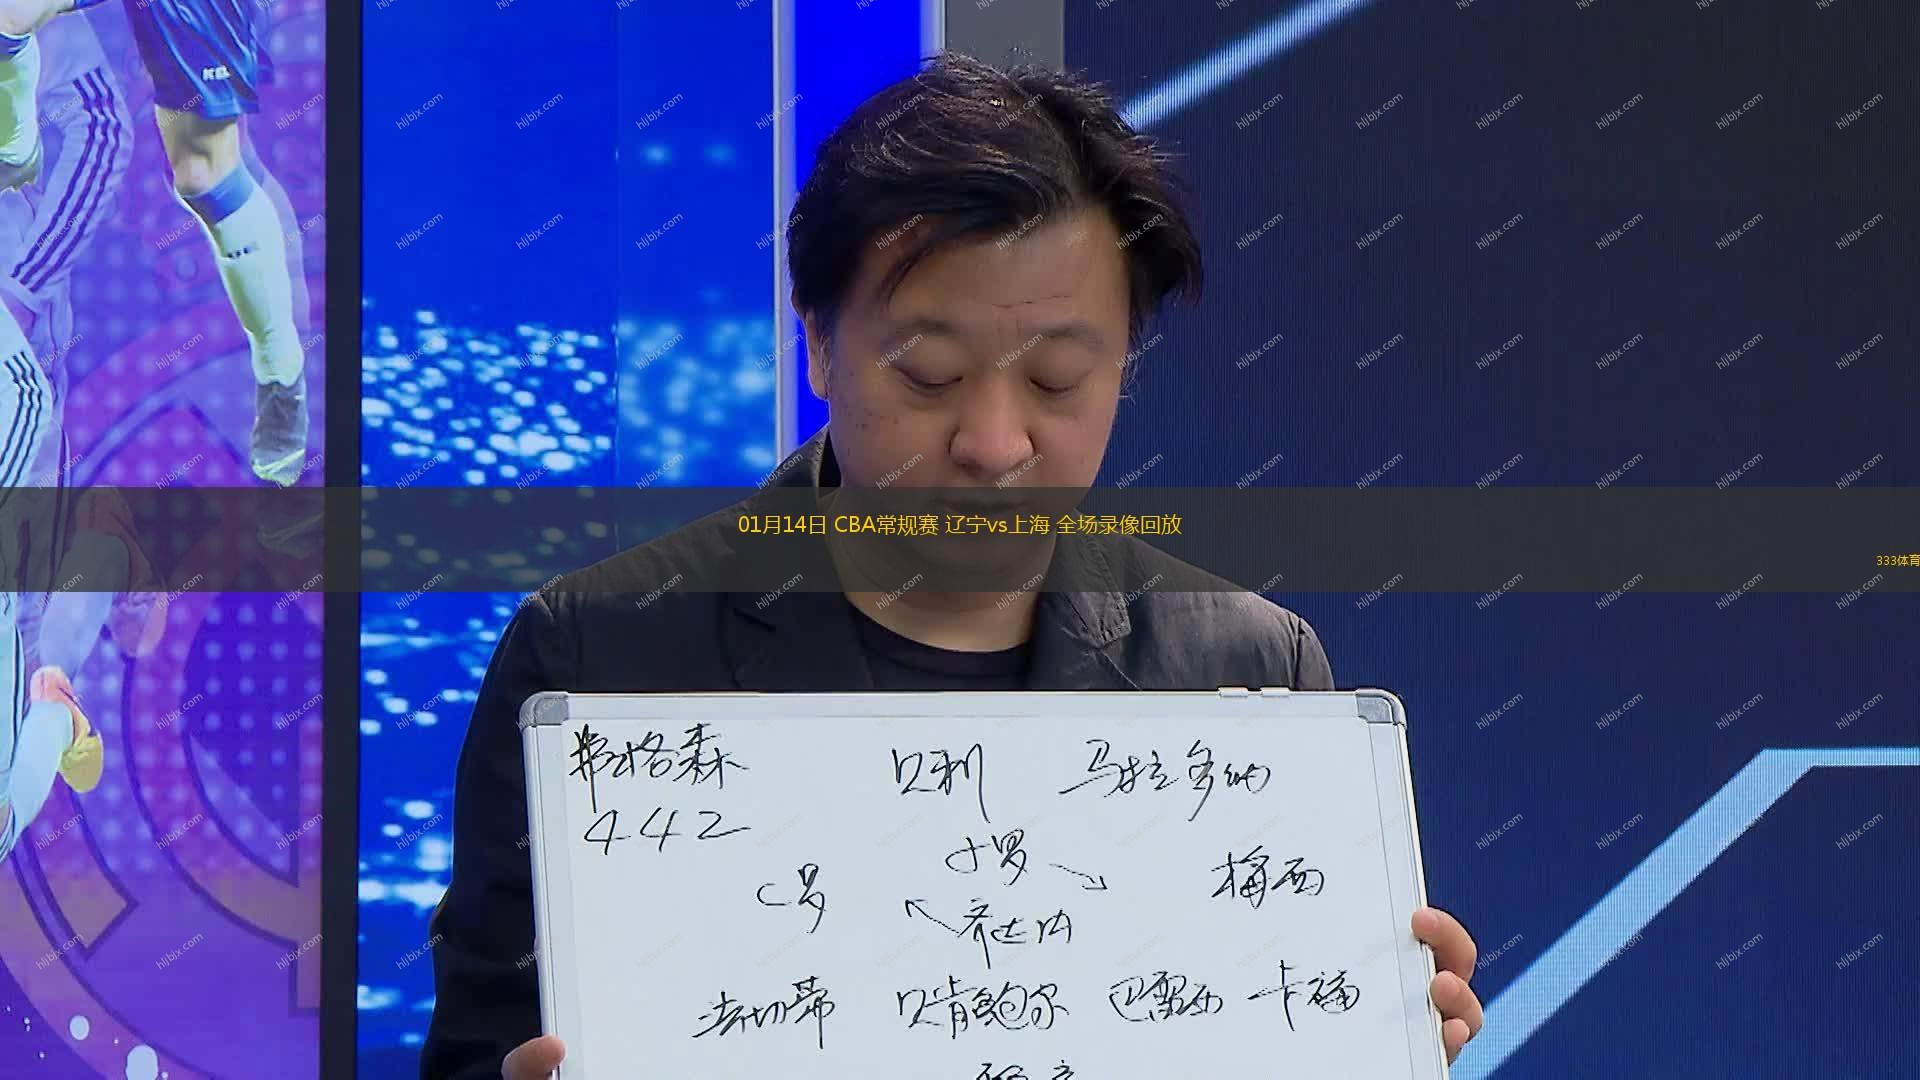 01月14日 CBA常规赛 辽宁vs上海 全场录像回放
333体育
hljbjx.com
KELME
弗格森 贝利 马拉多纳
442
小罗
C罗 梅西
齐达内
法切蒂 贝肯鲍尔 巴雷西 卡福